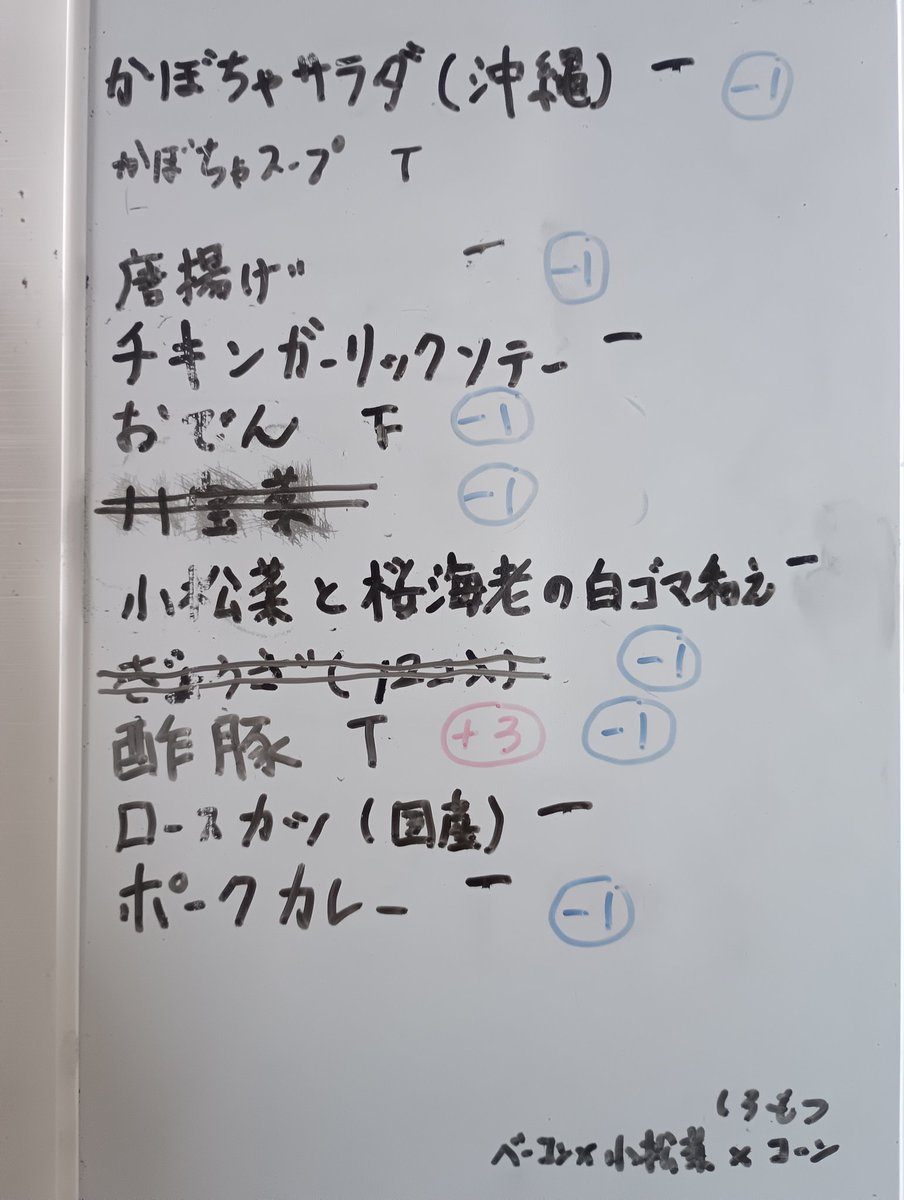 かぼちゃサラダ(沖縄) ー -1
かぼちゃスープ T
唐揚げ ー -1
チキンガーリックソテー ー
おでん 下 -1
八宝菜 -1
小松菜と桜海老の白ゴマ和え ー
ぎょうざ( -1
酢豚 T +3 -1
ロースカツ(国産) ー
ポークカレー ー -1
しろもつ
ベーコン×小松菜×コーン